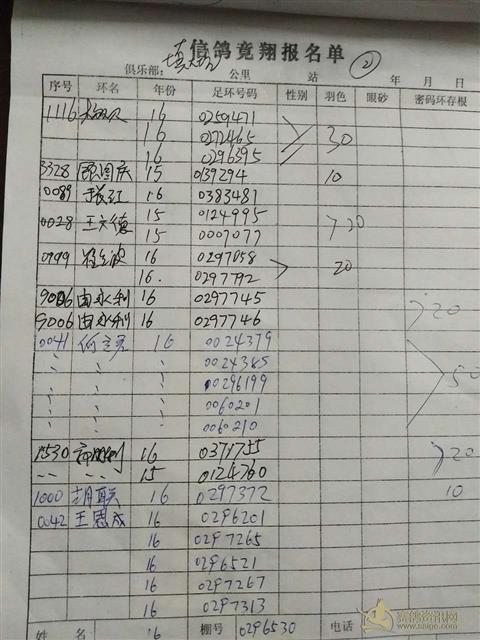 信鸽竟翔报名单
②
俱乐部： 公里 站 年 月 日
序号 环名 年份 足环号码 性别 羽色 眼砂 密码环存根
1116 16 0259471
16 0272465 30
16 0296395
3328 15 0139294 10
0089 16 0383481
0028 王文德 15 0124995 20
15 0007077
0999 16 0297058
16. 0297792 20
9006 由永利 16 0297745
9006 由永利 16 0297746 20
0041 16 0024379
〃 〃 〃 0024385
〃 〃 00296199 50
〃 〃 0060201
〃 〃 0060210
1530 16 0371755 20
〃 〃 15 0124760
1000 胡联 16 0297372 10
0042 王恩成 16 0296201
16 0297265
16 0296521
16 0297267
16 0297313
姓名 16 棚号 0296530 电话
赛鸽资讯网